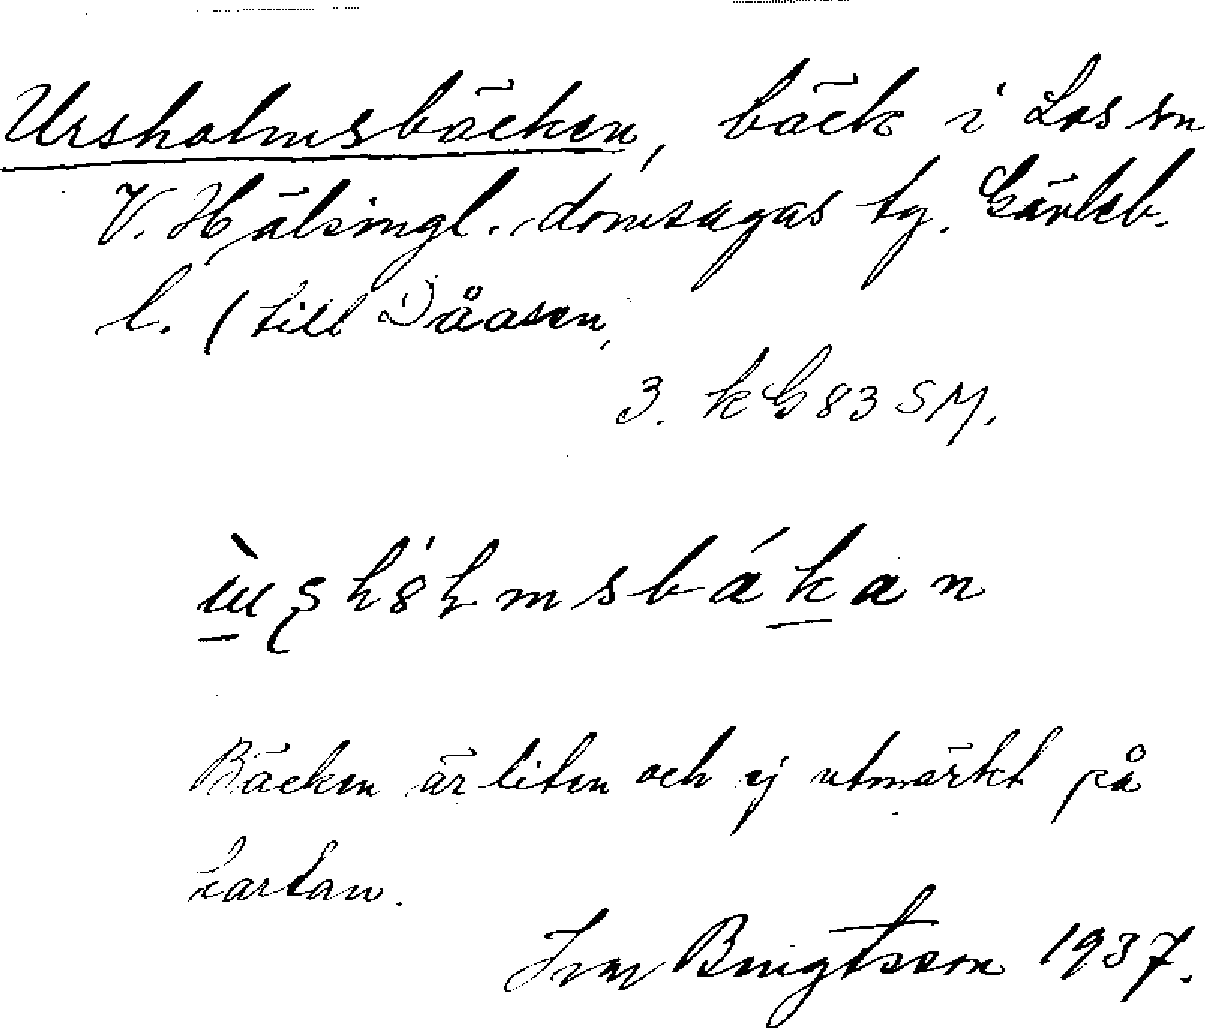 Ursholmsbäcken, bäck i Los sn
V. Hälsingl. domsagas tg. Gävleb.
l. (till Dåasen,
3. k G 83 SM.
Bäcken är liten och ej utmärkt på
kartan.
Bengtsson 1937.